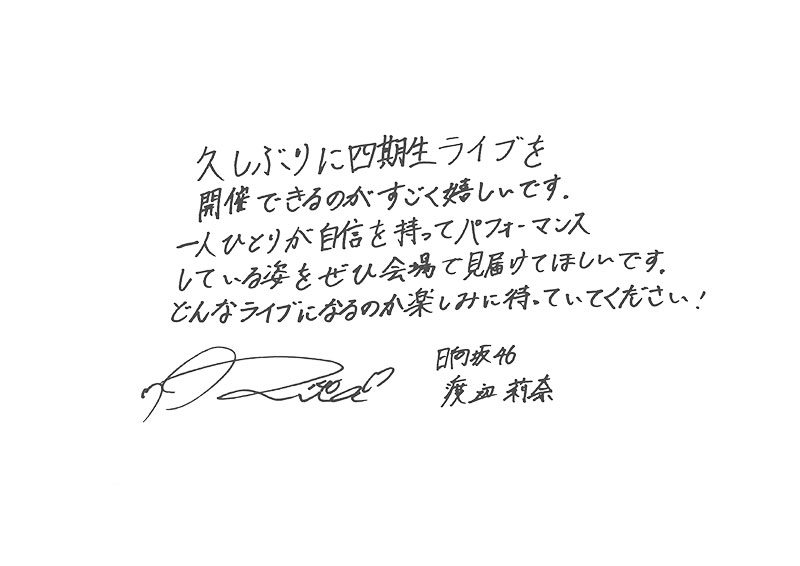 久しぶりに四期生ライブを
開催できるのがすごく嬉しいです.
一人ひとりが自信を持ってパフォーマンス
している姿をぜひ会場で見届けてほしいです.
どんなライブになるのか楽しみに待っていてください!
日向坂46
渡辺 莉奈